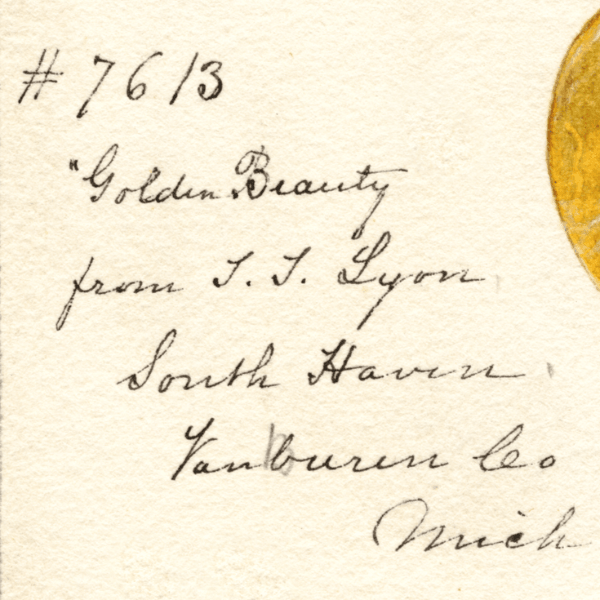 # 7613
"Golden Beauty
from T. T. Lyon
South Haven.
Vanburen Co
Mich